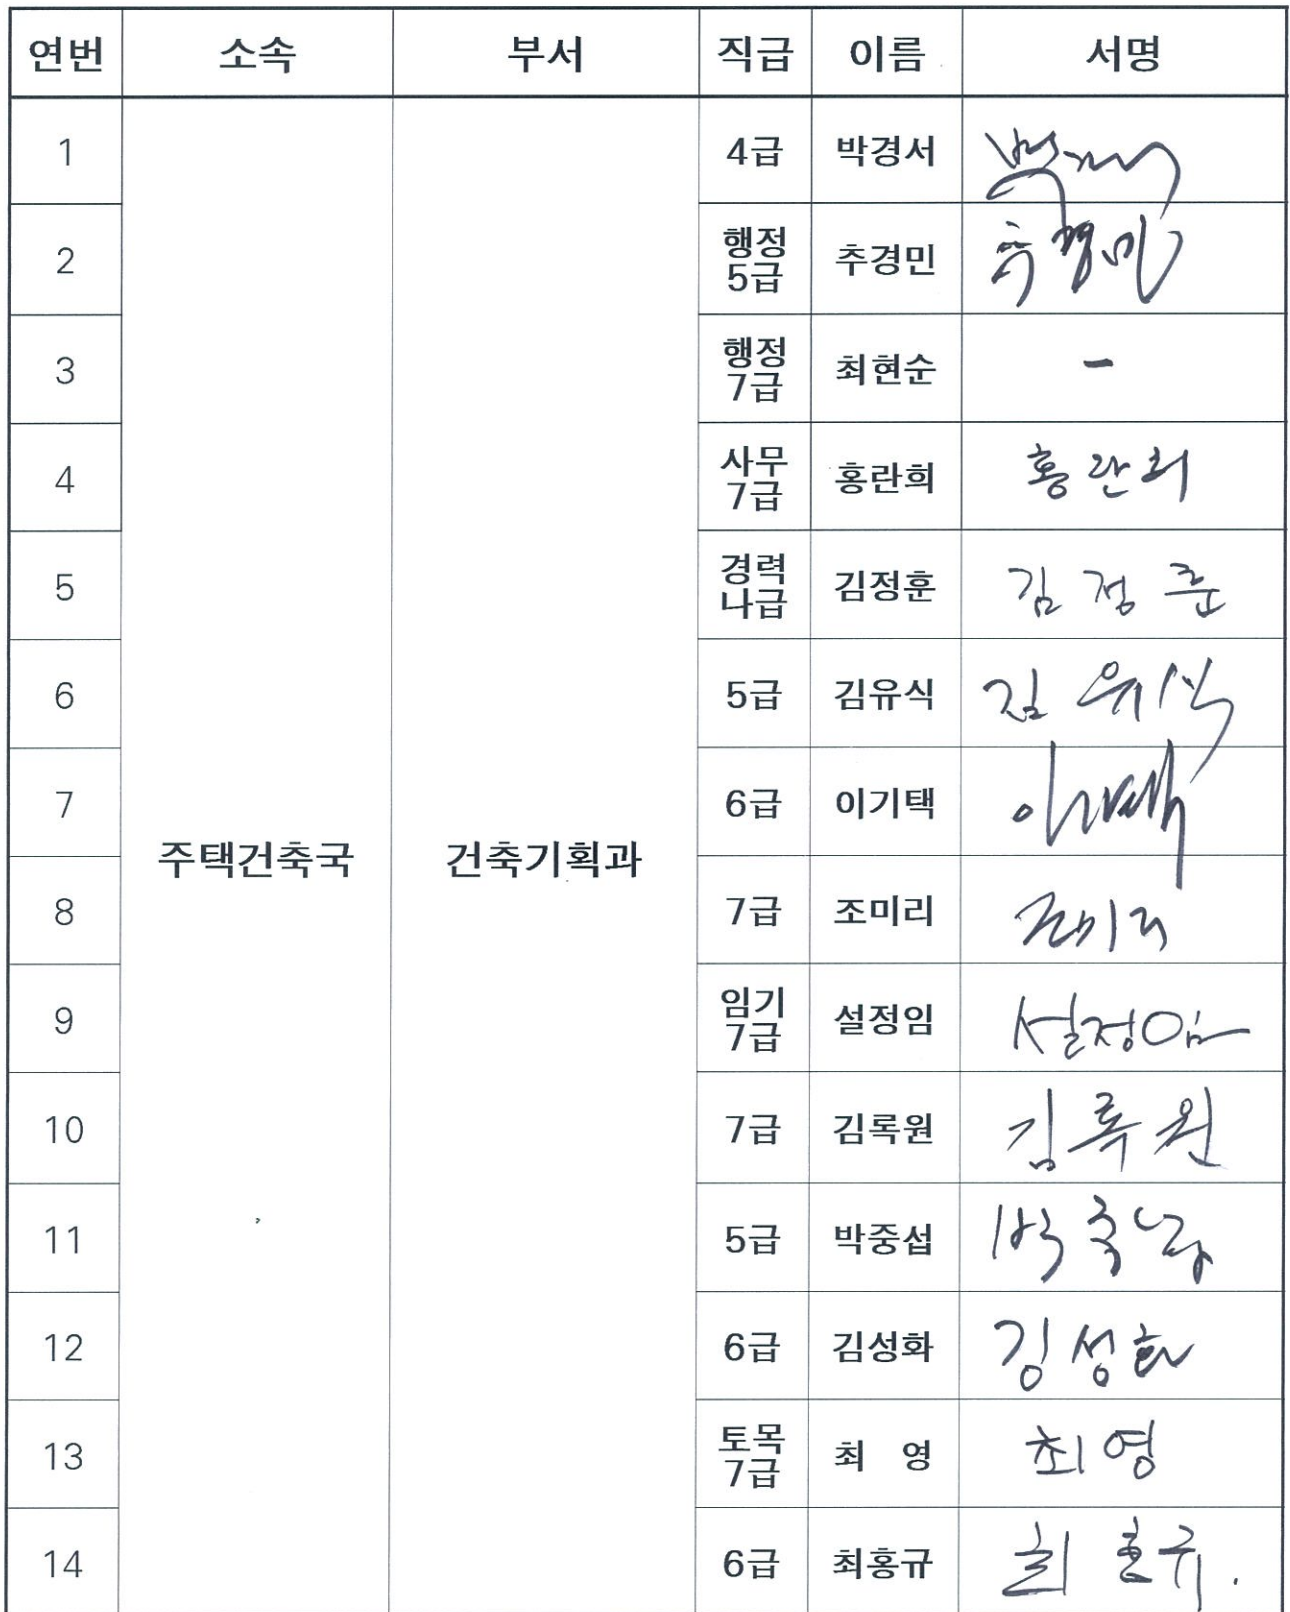 연번 소속 부서 직급 이름 서명
1 4급 박경서
2 행정 5급 추경민 추경민
3 행정 7급 최현순 -
4 사무 7급 홍란희 홍란희
5 경력 나급 김정훈 김정훈
6 5급 김유식 김유식
7 6급 이기택 이기택
주택건축국 건축기획과
8 7급 조미리 조미리
9 임기 7급 설정임 설정임
10 7급 김록원 김록원
11 5급 박중섭 박중섭
12 6급 김성화 김성화
13 토목 7급 최 영 최영
14 6급 최홍규 최홍규.